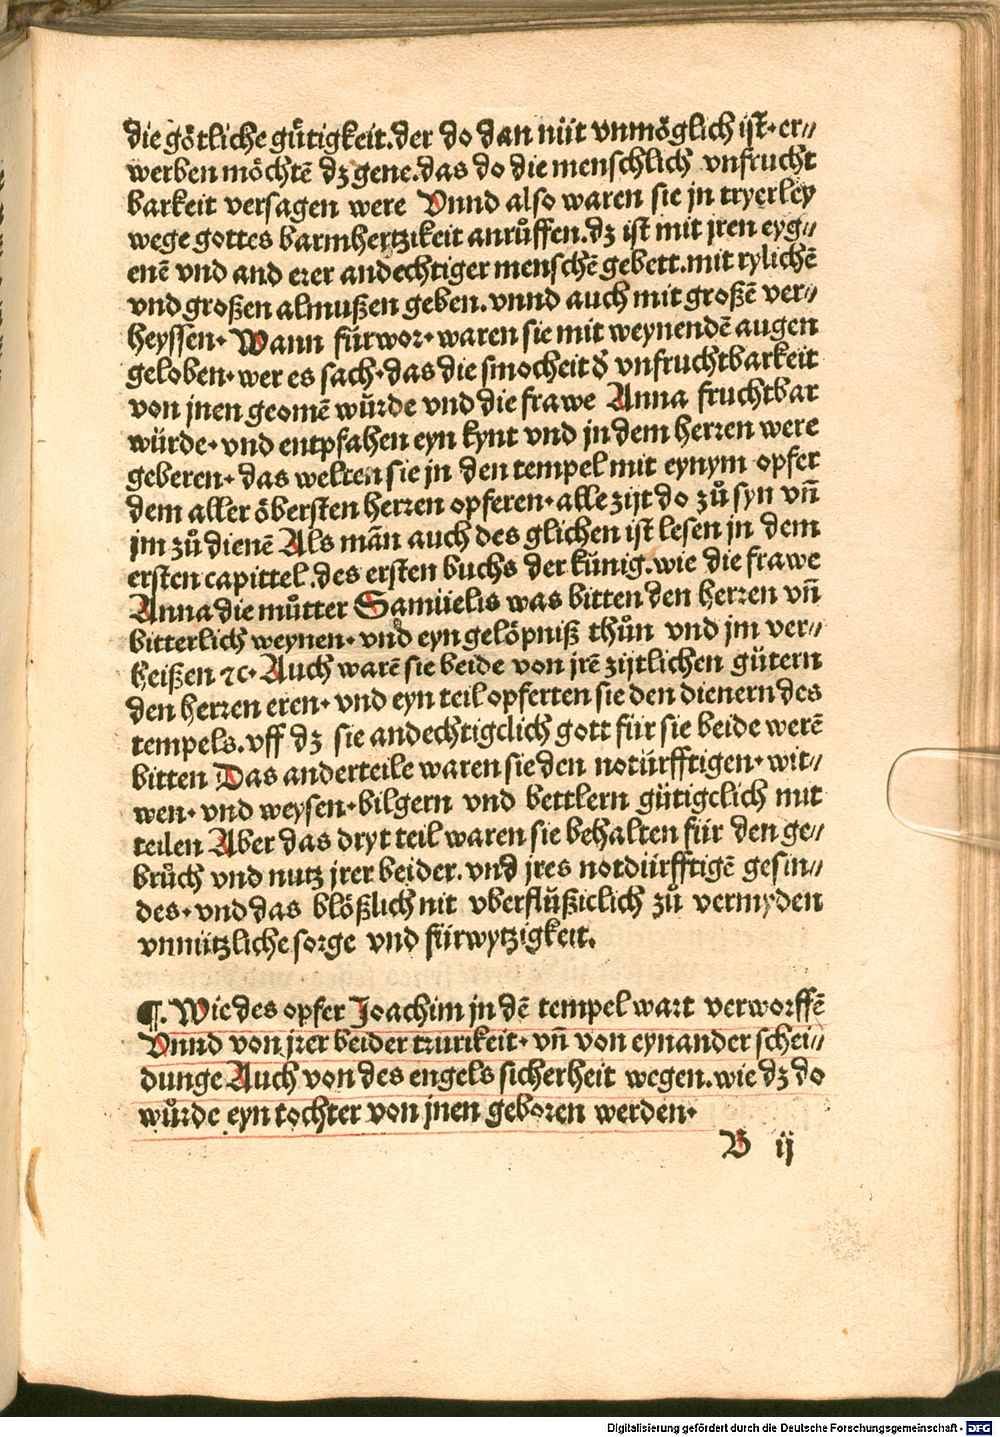 die götliche gütigkeit.der do dan niit vnmöglich ist·er⸗
werben möchtē dz gene.das do die menschlich vnfrucht
barkeit versagen were Vnnd also waren sie jn tryerley
wege gottes barmhertzikeit anrůffen.dz ist mit jren eyg⸗
enē vnd and erer andechtiger menschē gebett.mit rylichē
vnd großen almußen geben.vnnd auch mit großē ver⸗
heyssen· Wann fürwor·waren sie mit weynendē augen
geloben·wer es sach·das die smocheit đ vnfruchtbarkeit
von jnen geomē würde vnd die frawe Anna fruchtbar
würde·vnd entpfahen eyn kynt vnd jn dem herren were
geberen·das welten sie jn den tempel mit eynym opfer
dem aller öbersten herren opferen·alle zijt do zů syn vñ
jm zů dienē Als mān auch des glichen ist lesen jn dem
ersten capittel.des ersten buchs der künig.wie die frawe
Anna die můtter Samüelis was bitten den herren vñ
bitterlich weynen·vnd eyn gelöpniß thůn vnd jm ver⸗
heißen ⁊c·Auch warē sie beide von jrē zijtlichen gütern
den herren eren·vnd eyn teil opferten sie den dienern des
tempels.vff dz sie andechtigclich gott für sie beide werē
bitten Das anderteile waren sie den notürfftigen·wit⸗
wen·vnd weysen·bilgern vnd bettlern gütigclich mit
teilen Aber das dryt teil waren sie behalten für den ge⸗
brůch vnd nutz jrer beider.vnd jres notdürfftigē gesin⸗
des·vnd das blößlich nit vberflüßiclich zů vermyden
vnnützliche sorge vnd fürwytzigkeit.
¶.Wie des opfer Joachim jn dē tempel wart verworffē
Vnnd von jrer beider trurikeit·vñ von eynander schei⸗
dunge Auch von des engels sicherheit wegen.wie dz do
wůrde eyn tochter von jnen geboren werden·
B ij
Digitalisierung gefördert durch die Deutsche Forschungsgemeinschaft - DFG